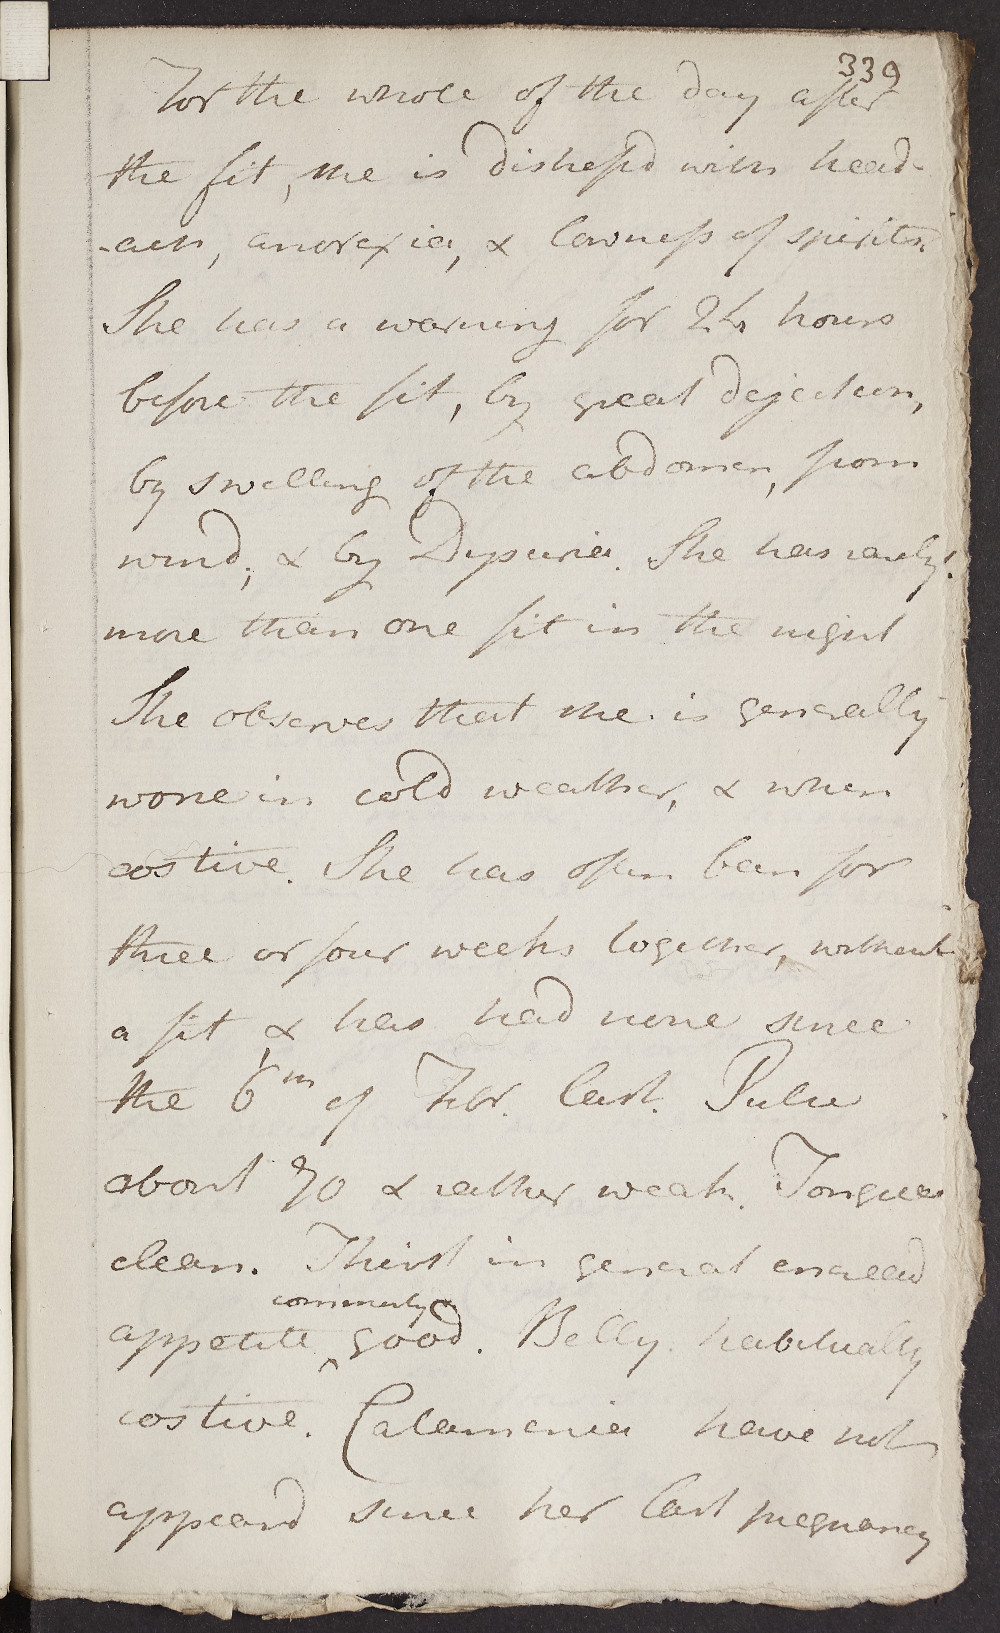 339
For the whole of the day after
the fit, she is distressd with head-
-ach, anorexia, & lowness of spirits.
She has a warning for 24 hours
before the fit, by great dejection,
by swelling of the abdomen, from
wind, & by Dysuria. She has rarely
more than one fit in the night
She observes that she is generally
worse in cold weather, & when
costive. She has often been for
three or four weeks together, without
a fit & has had none since
the 6th of Febr. last. Pulse
about 70 & rather weak. Tongue
clean. Thirst in general encreasd
commonly
appetite ^ good. Belly habitually
costive. Catamenia have not
appeard since her last pregnancy